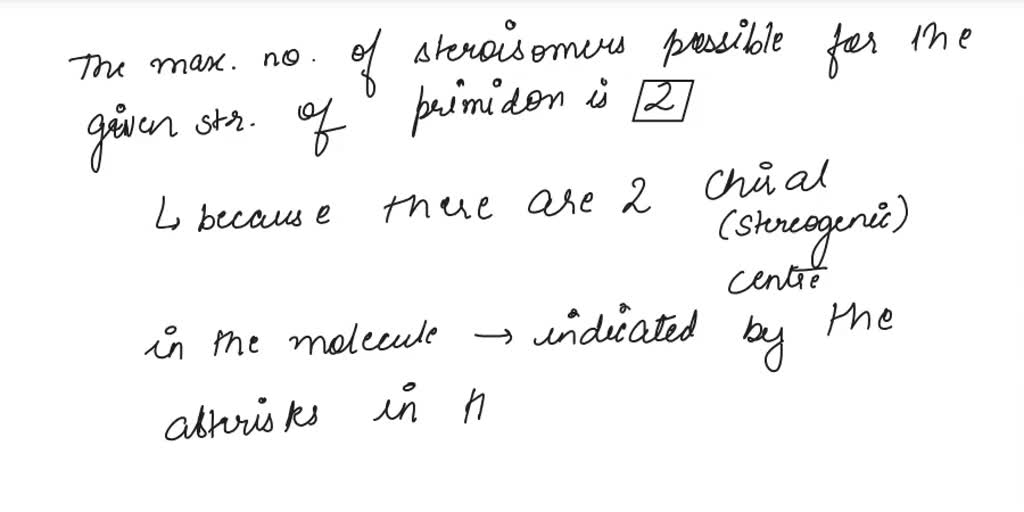 The max. no. of steroisomers possible for the
given str. of primidon is 2
↳ because there are 2 chiral
(stereogenic)
centre
in the molecule → indicated by the
asterisks in